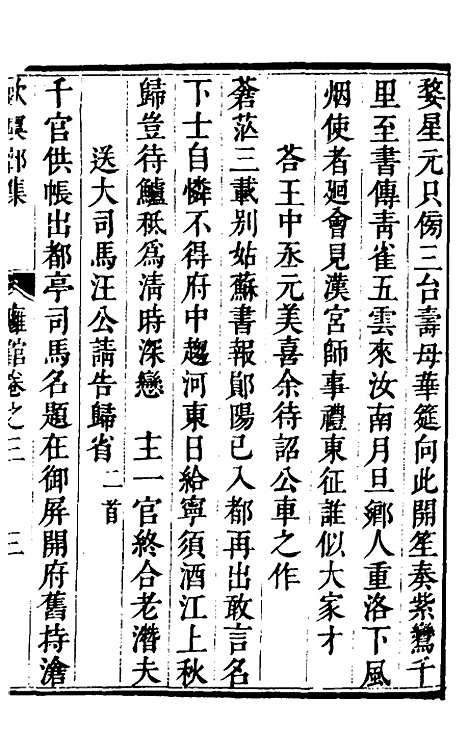 婺星元只傍三台壽母華筵向此開笙奏紫鸞千
里至書傳靑雀五雲來汝南月旦鄉人重洛下風
烟使者廻會見漢宮師事禮東征誰似大家才
荅王中丞元美喜余待詔公車之作
蒼茫三載別姑蘇書報鄖陽已入都再出敢言名
下士自憐不得府中趨河東日給寧須酒江上秋
歸豈待鱸秪爲清時深戀主一官終合老潛夫
送大司馬汪公請告歸省二首
千官供帳出都亭司馬名題在御屏開府舊持滄
集
館卷之三
三